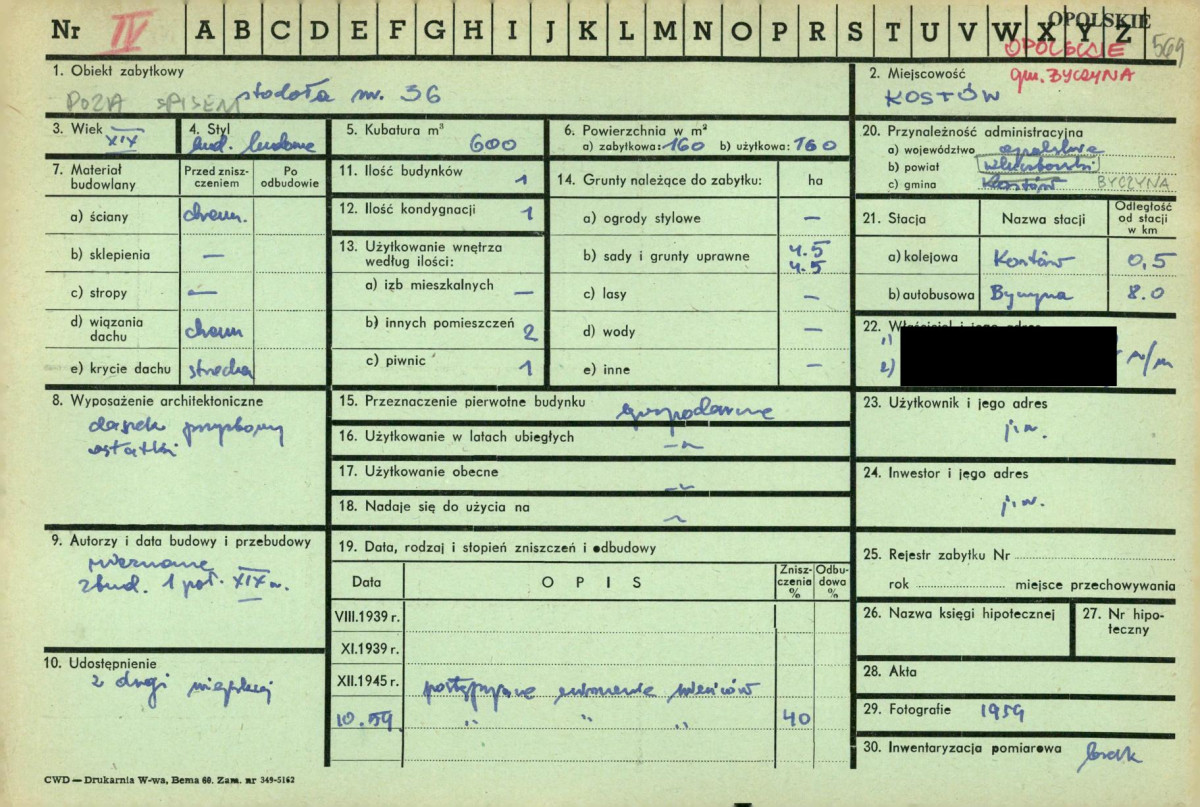 Nr IV A B C D E F G H I J K L M N O P R S T U V W X Y Z
OPOLSKIE
OPOLSKIE 569
gm. BYCZYNA
1. Obiekt zabytkowy
POZA SPISEM stodoła nr. 36
2. Miejscowość
KOSTÓW
3. Wiek XIX
4. Styl
bud. ludowe
5. Kubatura m³
600
6. Powierzchnia w m²
a) zabytkowa: 160 b) użytkowa: 160
20. Przynależność administracyjna
a) województwo opolskie
b) powiat kluczborski
c) gmina Kostów BYCZYNA
7. Materiał budowlany
Przed znisz-
czeniem
Po
odbudowie
a) ściany drewn.
b) sklepienia —
c) stropy —
d) wiązania
dachu drewn
e) krycie dachu strzecha
11. Ilość budynków 1
12. Ilość kondygnacji 1
13. Użytkowanie wnętrza
według ilości:
a) izb mieszkalnych —
b) innych pomieszczeń 2
c) piwnic 1
14. Grunty należące do zabytku: ha
a) ogrody stylowe —
b) sady i grunty uprawne 4.5
4.5
c) lasy —
d) wody —
e) inne —
21. Stacja Nazwa stacji
Odległość
od stacji
w km
a) kolejowa Kostów 0,5
b) autobusowa Byczyna 8.0
22. Właściciel i jego adres
1)
2) w/m
8. Wyposażenie architektoniczne
daszek przyzbowy
ostatki
15. Przeznaczenie pierwotne budynku gospodarcze
16. Użytkowanie w latach ubiegłych —"—
17. Użytkowanie obecne —"—
18. Nadaje się do użycia na —"—
23. Użytkownik i jego adres
j.w.
24. Inwestor i jego adres
j.w.
9. Autorzy i data budowy i przebudowy
nieznane
zbud. 1 poł. XIX w.
19. Data, rodzaj i stopień zniszczeń i odbudowy
Data OPIS
Znisz-
czenia
%
Odbu-
dowa
%
VIII.1939 r.
XI.1939 r.
XII.1945 r. postępujące murszenie wieńców
10.59. " " " 40
25. Rejestr zabytku Nr
rok miejsce przechowywania
26. Nazwa księgi hipotecznej
27. Nr hipo-
teczny
10. Udostępnienie
z drogi wiejskiej
28. Akta
29. Fotografie 1959
30. Inwentaryzacja pomiarowa brak
CWD — Drukarnia W-wa, Bema 60. Zam. nr 349-5162